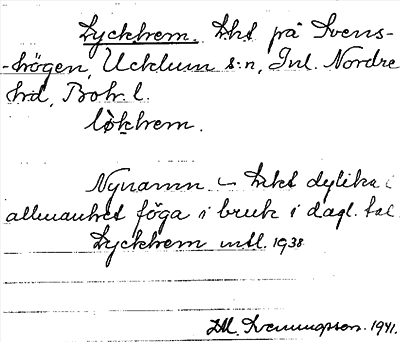 Lyckhem. Lht på Svens-
-högen, Ucklum s:n, Inl. Nordre
hd, Boh. l.
lykhem.
Nynamn. – Lhts dylika i
allmänhet föga i bruk i dagl. tal.
Lyckhem mtl. 1938
J.M. Svenungsson. 1941.